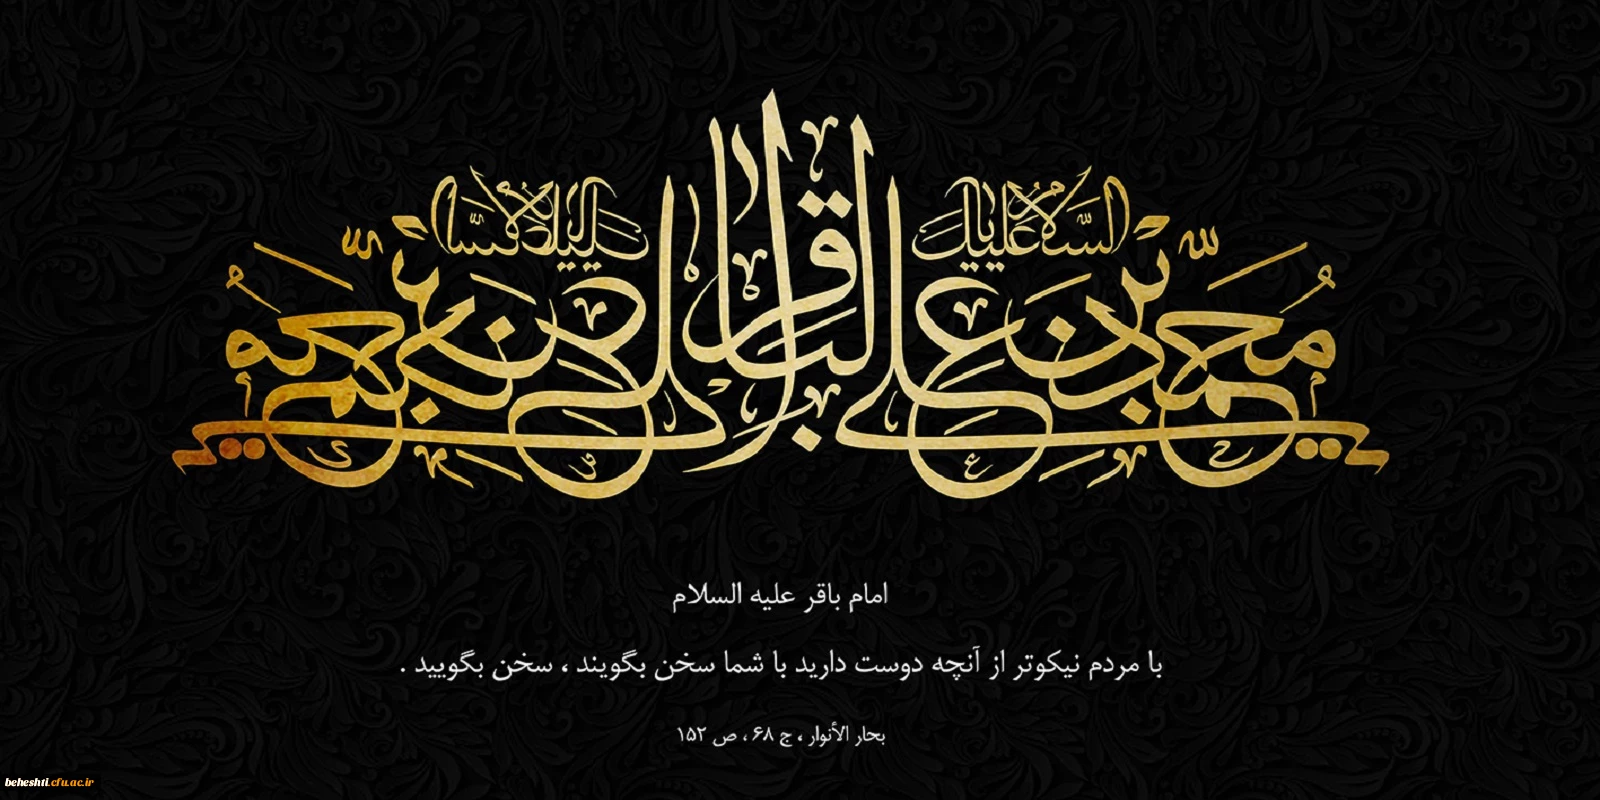 السلام علیک
یا محمد بن علی الباقر
امام باقر علیه السلام
با مردم نیکوتر از آنچه دوست دارید با شما سخن بگویند ، سخن بگویید .
بحار الأنوار ، ج ۶۸ ، ص ۱۵۲
beheshti.cfu.ac.ir